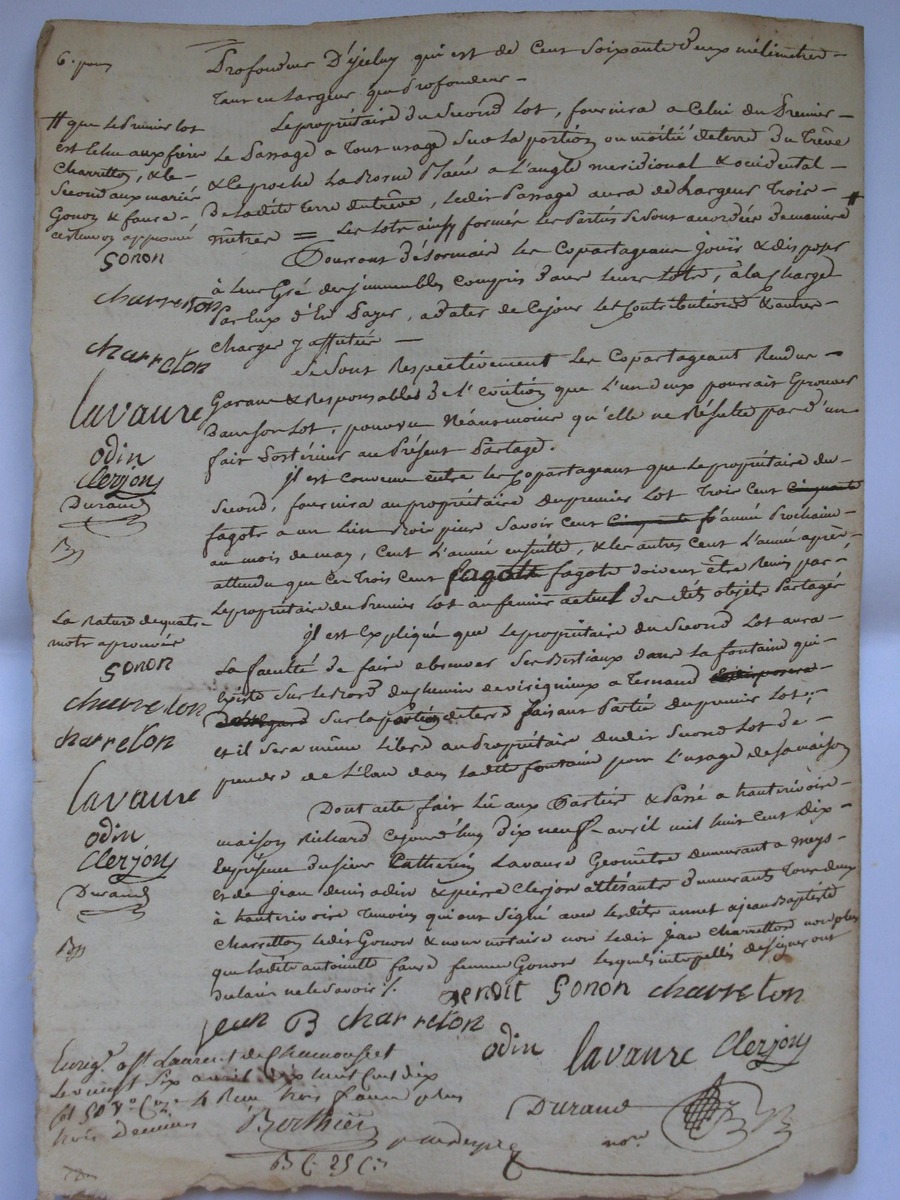 6. pan
Profondeur D'ycelluy qui est de Cent Soixante deux milimetres
Tant en Largeur que Profondeur
Le propriétaire du Second Lot, fournira a Celui du Premier
Le Passage a Tout usage Sur La portion ou moitié deterre du Trêve
& Le proche La Borne Placée a L'angle meridional & occidental
De Ladite Terre dutrêve, Ledit Passage aura de Largeur Trois
mêtres = Les Lots ainsy formés Les Parties Se Sont accordées demaniere #
# que Le Premier lot
est Echu aux frères
Charretton, & le
Second aux mariés
Gonon & faure
Gonon
charreton
charreton
lavaure
odin
Clerjon
Durand
Pourront Désormais Les Copartageans Jouir & disposer
à Leur Gré des jmmeubles Compris dans Leurs Lots, à la Charge
Par Eux d'En Payer, adater de Cejour Les Contributions & autres
Charges y affectées
Se Sont Respectivement Les Copartageant Rendus
Garans & Responsables De L'Eviction que L'un deux pourrait Eprouver
Dans Son Lot, pourvu Néanmoins qu'elle ne Résulte pas d'un
fait Postérieur au Présent Partage.
jl est Convenu entre les Copartageans que Le propriétaire du
Second, fournira au propriétaire Du premier Lot Trois Cent Cinquante
fagots a un Lien Bois pin Savoir Cent Cinquante L'année Prochaine
au mois de may, Cent L'année ensuitte, & les autres Cent L'année après
attendu que Ces Trois Cent fagots fagots doivent être Remis par
Le propriétaire du Premier Lot au fermier actuel Des dits objets Partagés
La rature de quatre
mots aprouvée
Gonon
charreton
charreton
lavaure
odin
Clerjon
Durand
jl est Expliqué que Le propriétaire du Second Lot aura
La faculté de faire abreuver Ses Bestiaux dans La fontaine qui
Existe Sur Le Bord du chemin de viriginieux a Ternand
Sur La portion deterre faisant Partie Du premier Lot;
et il Sera même Libre au Propriétaire Dudit Second Lot de
prendre de L'Eau dans Ladite fontaine pour L'usage de Sa maison
Dont acte fait Lû aux Parties & Passé a hauterivoire
maison Richard Cejourd'huy dix neuf avril mil huit Cent Dix
En présence du Sieur Catherin Lavaure Geomêtre demeurant a Meys
et de Jean denis odin & pierre Clerjon demeurants Tous deux
à hauterivoire Temoins qui ont Signé avec Lesdits annet & jean Baptiste
Charretton Ledit Gonon & nous notaire non Ledit Jean Charretton non plus
que Ladite antoinette faure femme Gonon Lesquels interpellés de Signer ont
Déclaré ne Le Savoir ./.
Benoit Gonon charreton
jean B charreton
odin lavaure Clerjon
Durand
nore
Enrigé. a St Laurent de Chamousset
Le vingt Six avril mil huit Cent dix
fol 50 Vo
Berthier